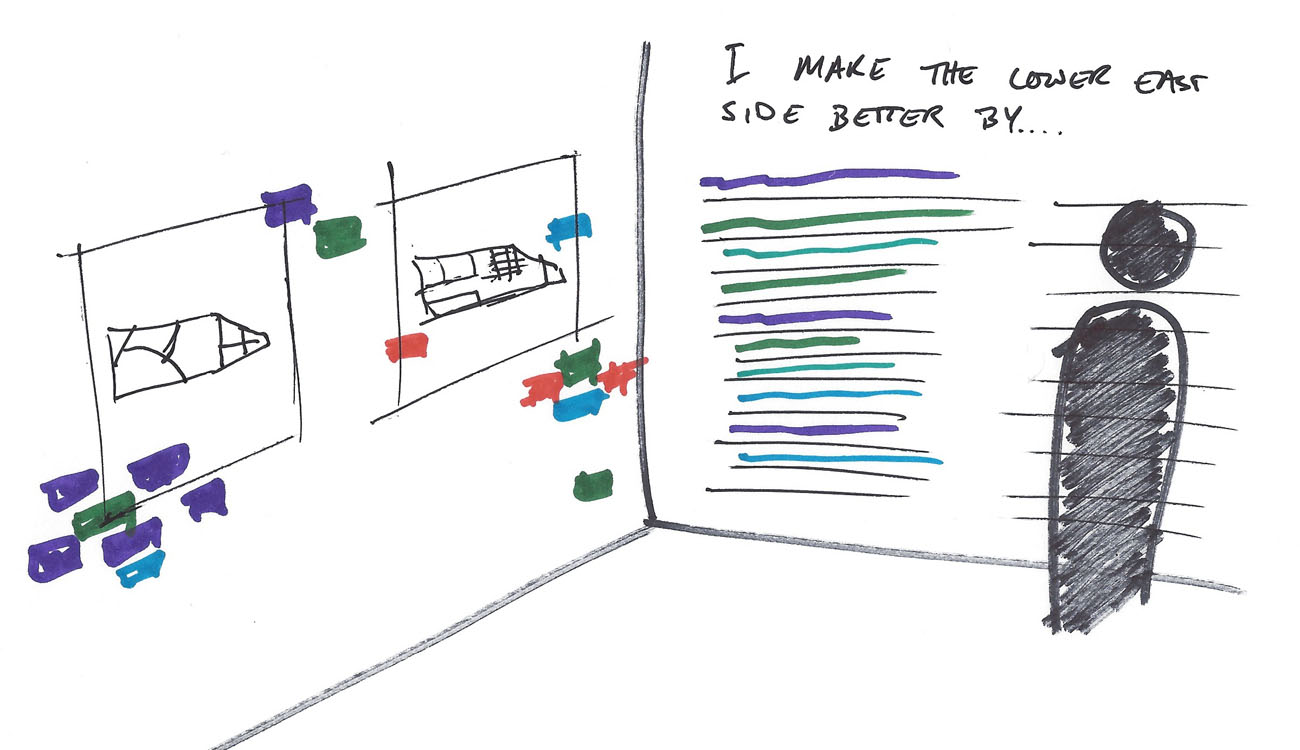 I MAKE THE LOWER EAST
SIDE BETTER BY....